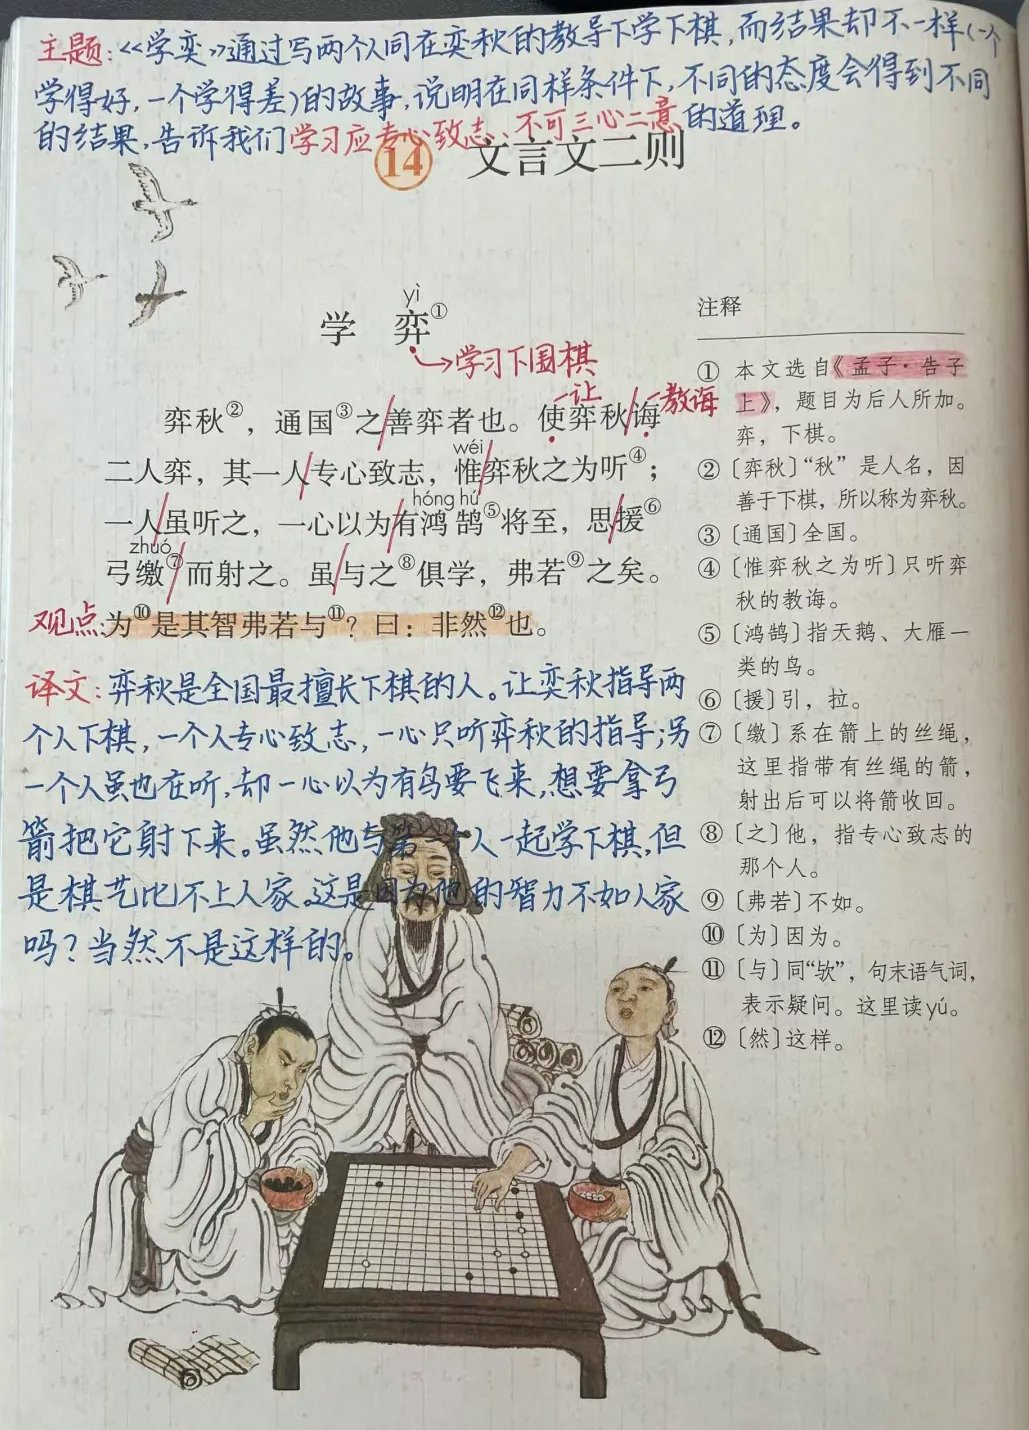 主题:《学奕》通过写两个人同在奕秋的教导下学下棋,而结果却不一样(一个
学得好,一个学得差)的故事,说明在同样条件下,不同的态度会得到不同
的结果,告诉我们学习应专心致志、不可三心二意的道理。
14 文言文二则
yì
学 弈①
学习下围棋
让
教诲
弈秋②,通国③之/善弈者也。使/弈秋/诲
wéi
二人弈,其一人/专心致志,惟/弈秋之为听④;
hóng hú
一人/虽听之,一心以为/有鸿鹄⑤将至,思/援⑥
zhuó
弓缴⑦/而射之。虽/与之⑧俱学,弗若⑨之矣。
观点:为⑩是其智弗若与⑪?曰:非然⑫也。
译文:弈秋是全国最擅长下棋的人。让奕秋指导两
个人下棋,一个人专心致志,一心只听弈秋的指导;另
一个人虽也在听,却一心以为有鸟要飞来,想要拿弓
箭把它射下来。虽然他与第一个人一起学下棋,但
是棋艺比不上人家。这是因为他的智力不如人家
吗?当然不是这样的。
注释
① 本文选自《孟子·告子
上》,题目为后人所加。
弈,下棋。
②〔弈秋〕“秋”是人名,因
善于下棋,所以称为弈秋。
③〔通国〕全国。
④〔惟弈秋之为听〕只听弈
秋的教诲。
⑤〔鸿鹄〕指天鹅、大雁一
类的鸟。
⑥〔援〕引,拉。
⑦〔缴〕系在箭上的丝绳,
这里指带有丝绳的箭,
射出后可以将箭收回。
⑧〔之〕他,指专心致志的
那个人。
⑨〔弗若〕不如。
⑩〔为〕因为。
⑪〔与〕同“欤”,句末语气词,
表示疑问。这里读yú。
⑫〔然〕这样。